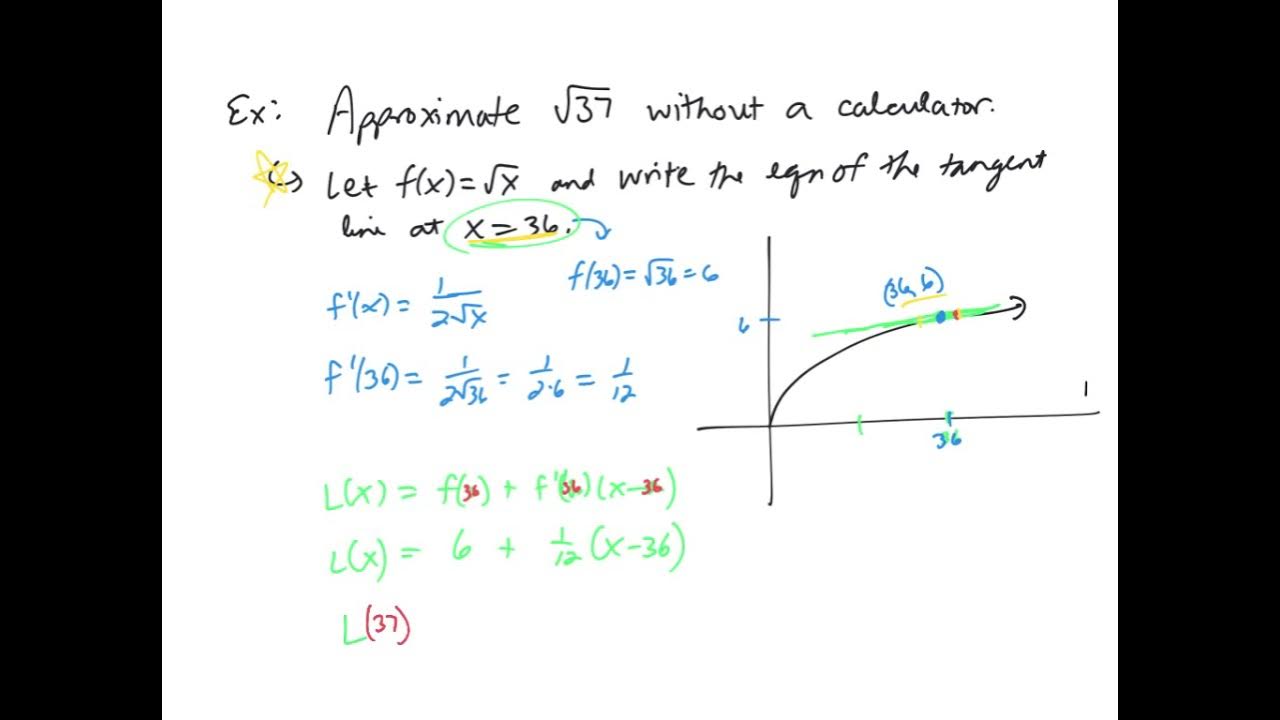 Ex: Approximate √37 without a calculator.
↳ Let f(x) = √x and write the eqn of the tangent
line at x = 36.
f(36) = √36 = 6
f'(x) = 1/(2√x)
f'(36) = 1/(2√36) = 1/(2·6) = 1/12
(36, 6)
6
36
L(x) = f(36) + f'(36)(x-36)
L(x) = 6 + 1/12 (x-36)
L(37)